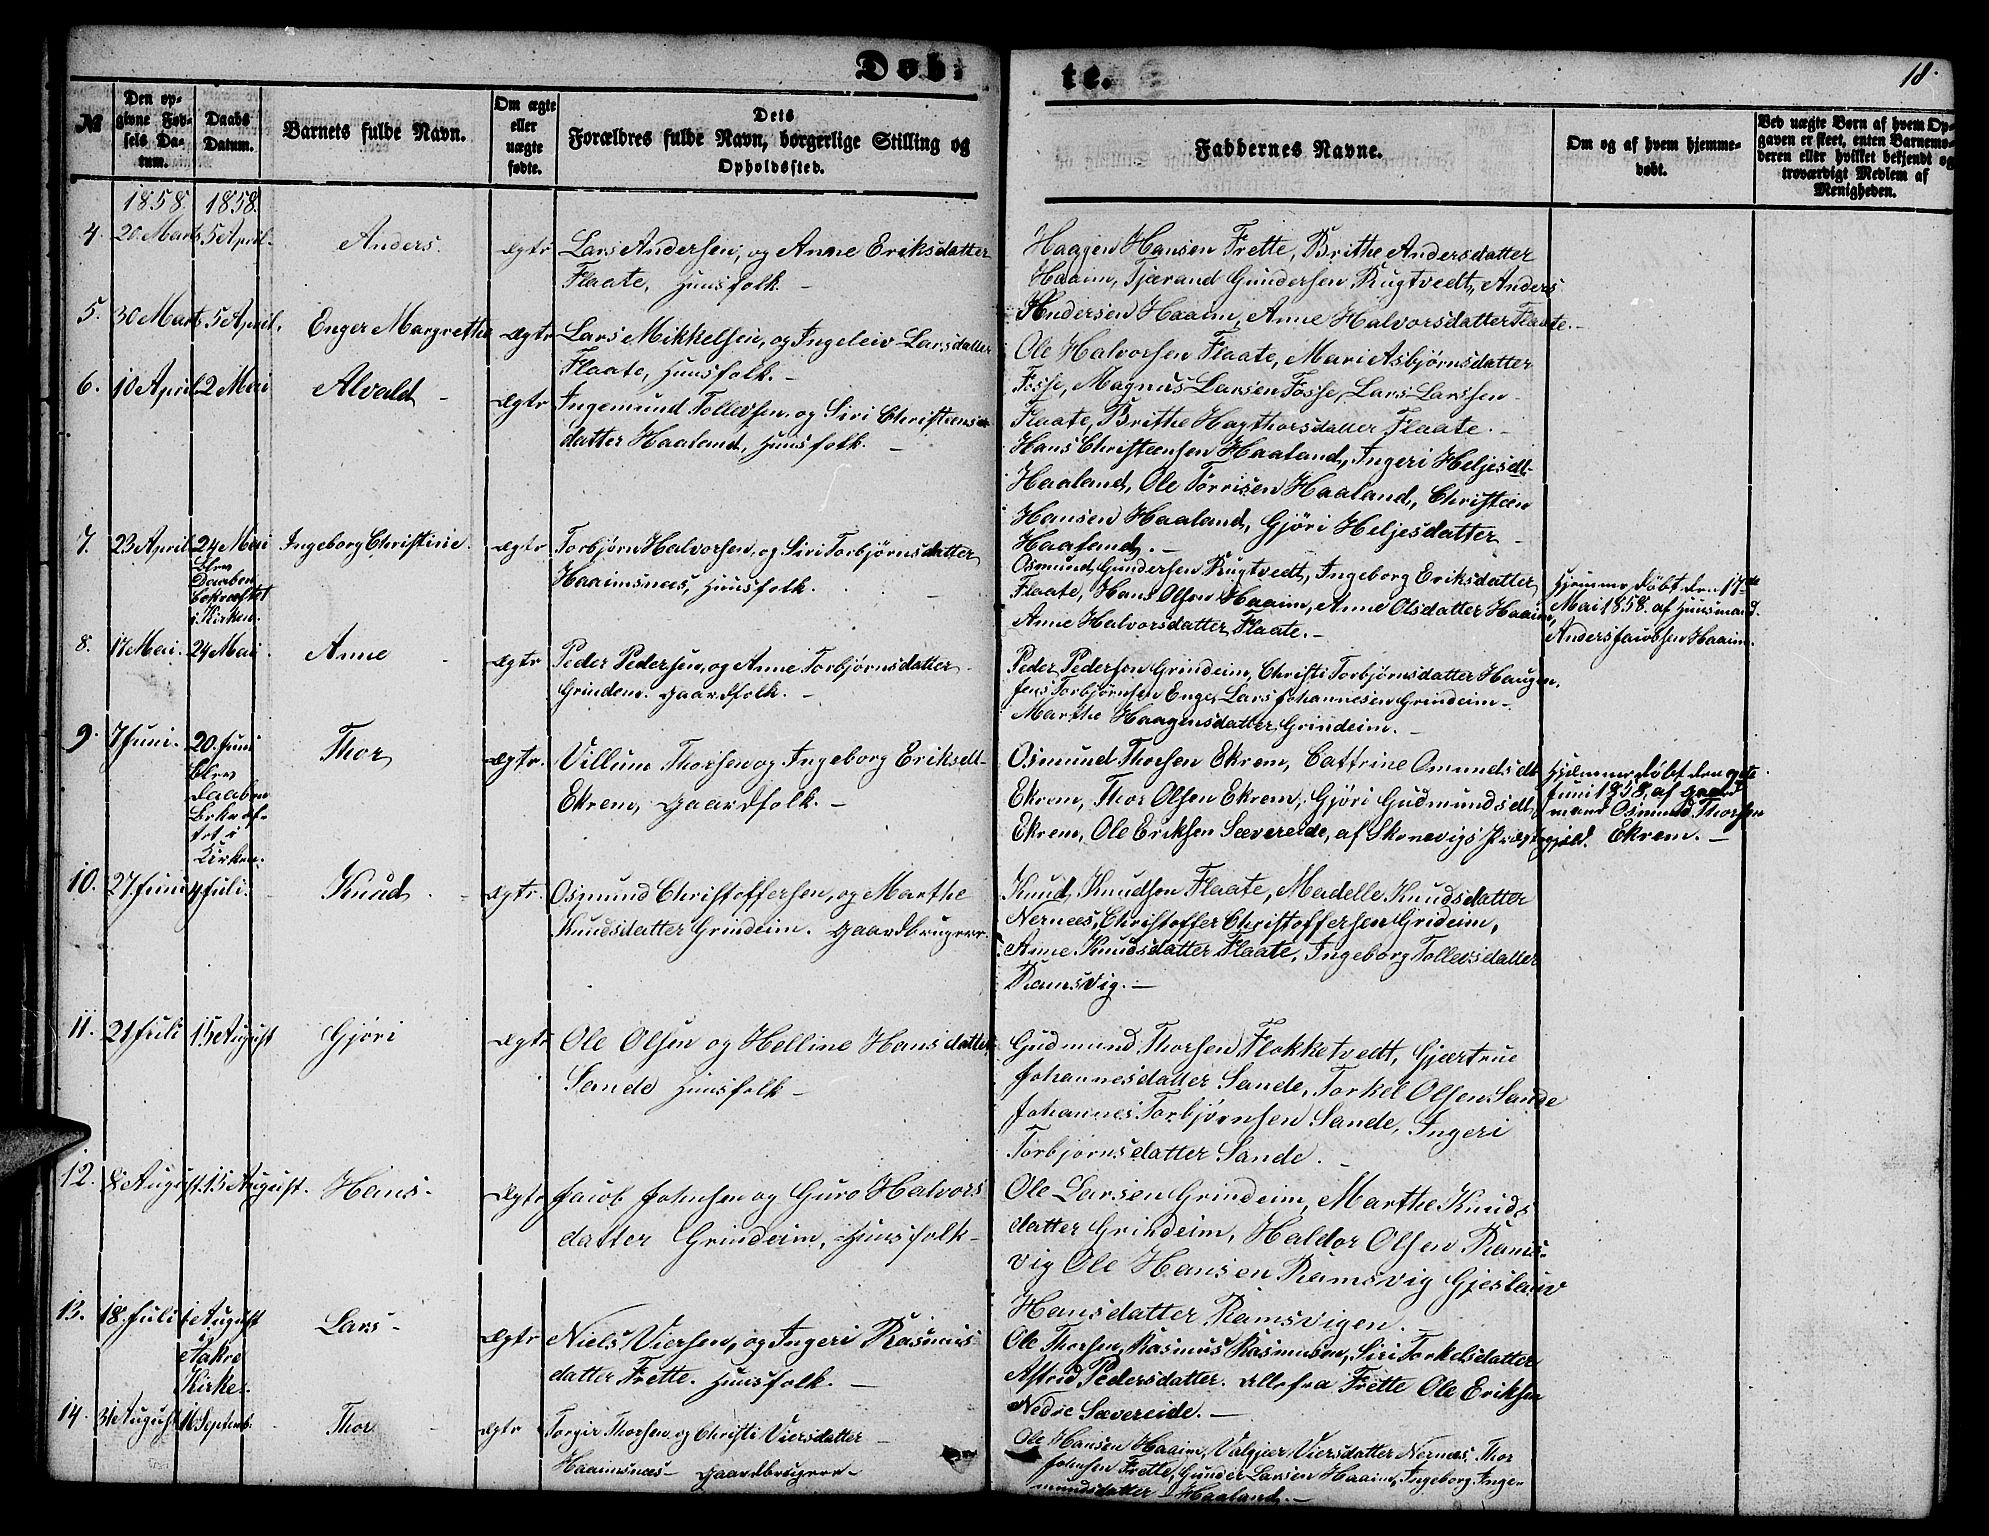 Døb-
te.
18.
№
Den op-
givne Fød-
sels Da-
tum.
Daabs
Datum.
Barnets fulde Navn.
Om ægte
eller
uægte
fødte.
Dets
Forældres fulde Navn, borgerlige Stilling og
Opholdssted.
Faddernes Navne.
Om og af hvem hjemme-
døbt.
Ved uægte Børn af hvem Op-
gaven er skeet, enten Barnemo-
deren eller hvilket bekjendt og
troværdigt Medlem af
Menigheden.
1858. 1858.
4. 20 Marts 5 April. Anders. Ægte
Lars Andersen, og Anne Eriksdatter
Flaate, Huusfolk. –
Haagen Hansen Frette, Brithe Andersdatter
Haaim, Tjærand Gundersen Rugtvedt, Anders
Andersen Haaim, Anne Halvorsdatter Flaate. –
5. 30 Marts 5 April. Enger Margrethe Ægte
Lars Mikkelsen, og Ingeleiv Larsdatter
Flaate, Huusfolk. –
Ole Halvorsen Flaate, Mari Asbjørnsdatter
Fosse, Magnus Larsen Fosse, Lars Larssen
Flaate, Brithe Hagthorsdatter Flaate. –
6. 10 April 2 Mai Alvald – Ægte
Ingemund Tollevsen, og Siri Christens-
datter Haaland, Huusfolk. –
Hans Christensen Haaland, Ingeri Heljesdt-
Haaland, Ole Tørrisen Haaland, Christen
Hansen Haaland, Gjøri Heljesdatter
Haaland. –
7. 23 April 24 Mai Ingeborg Christine. Ægte
blev
Daaben
bekræftet
i Kirken.
Torbjørn Halvorsen, og Siri Torbjørnsdatter
Haaimsnæs, Huusfolk.
Osmund Gundersen Rugtvedt, Ingeborg Eriksdatter
Flaate, Hans Olsen Haaim, Anne Olsdatter Haaim,
Anne Halvorsdatter Flaate. –
Hjemmedøbt den 17de
Mai 1858. af Huusmand
Anders Jacobsen Haaim.
8. 17 Mai. 24 Mai. Anne Ægte
Peder Pedersen, og Anne Torbjørnsdatter
Grindem. Gaardfolk. –
Peder Pedersen Grindeim, Christi Torbjørnsdatter Haugen,
Jens Torbjørnsen Enge, Lars Johannesen Grindeim –
Marthe Haagensdatter Grindeim. –
9. 7 Juni. 20. Juni Thor Ægte.
blev
Daaben
bekræf-
tet i
Kirken.
Villum Thorsen og Ingeborg Eriksdt-
Ekrem, Gaardfolk. –
Osmund Thorsen Ekrem, Cattrine Omundsdt
Ekrem, Thor Olsen Ekrem, Gjøri Gudmundsdt
Ekrem, Ole Eriksen Sævereide, af Skonevigs Præstegjæld.
Hjemmedøbt den 9de
Juni 1858, af Gaard
mand Osmund Thorsen
Ekrem. –
10. 27 Juni 4 Juli. Knud. Ægte.
Osmund Christoffersen, og Marthe
Knudsdatter Grindeim. Gaardbrugere.
Knud Knudsen Flaate, Madelle Knudsdatter
Nernæs, Christoffer Christoffersen Grideim,
Anne Knudsdatter Flaate, Ingeborg Tollevsdatter
Ramsvig. –
11. 21 Juli 15 August Gjøri Ægte
Ole Olsen og Helline Hansdatter
Sande Huusfolk –
Gudmund Thorsen Flokketvedt, Gjærtrue
Johannesdatter Sande, Torkel Olsen Sande
Johannes Torbjørnsen Sande, Ingeri
Torbjørnsdatter Sande. –
12. 8 August. 15 August. Hans. Ægte
Jacob Johnsen og Guro Halvors
datter Grindeim, Huusfolk –
Ole Larsen Grindeim, Marthe Knuds
datter Grindeim, Haldor Olsen Rams-
vig Ole Hansen Ramsvig Gjeslauv
Hansdatter Ramsvigen.
13. 18. Juli 1 August Lars – Ægte
i
Aakre
Kirke.
Niels Viersen, og Ingeri Rasmus-
datter Frette. Huusfolk. –
Ole Thorsen, Rasmus Rasmusen, Siri Torkelsdatter
Astrid Pedersdatter. Alle fra Frette Ole Eriksen
Nedre Sævereide. –
14. 31 August 16 Septemb. Thor Ægte
Torgir Thorsen og Christi Viersdatter –
Haaimsnæs – Gaardbrugere –
Ole Hansen Haaim, Valgjær Viersdatter Nernæs, Thor
Johnsen Frette, Gunder Larsen Haaim, Ingeborg Inge-
mundsdatter Haaland. –